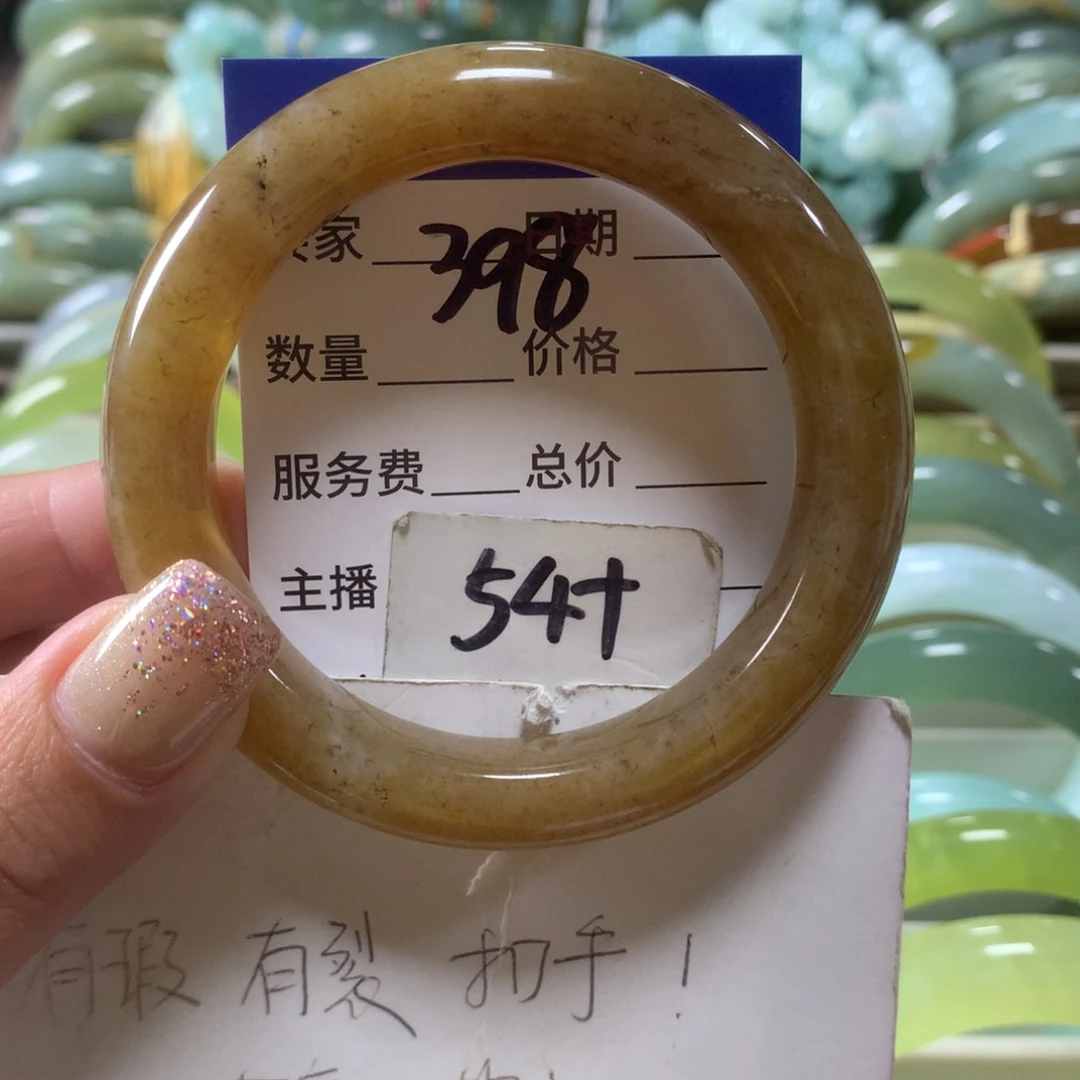 家 398 日期
数量 价格
服务费 总价
主播 54+
有瑕 有裂 扣手!